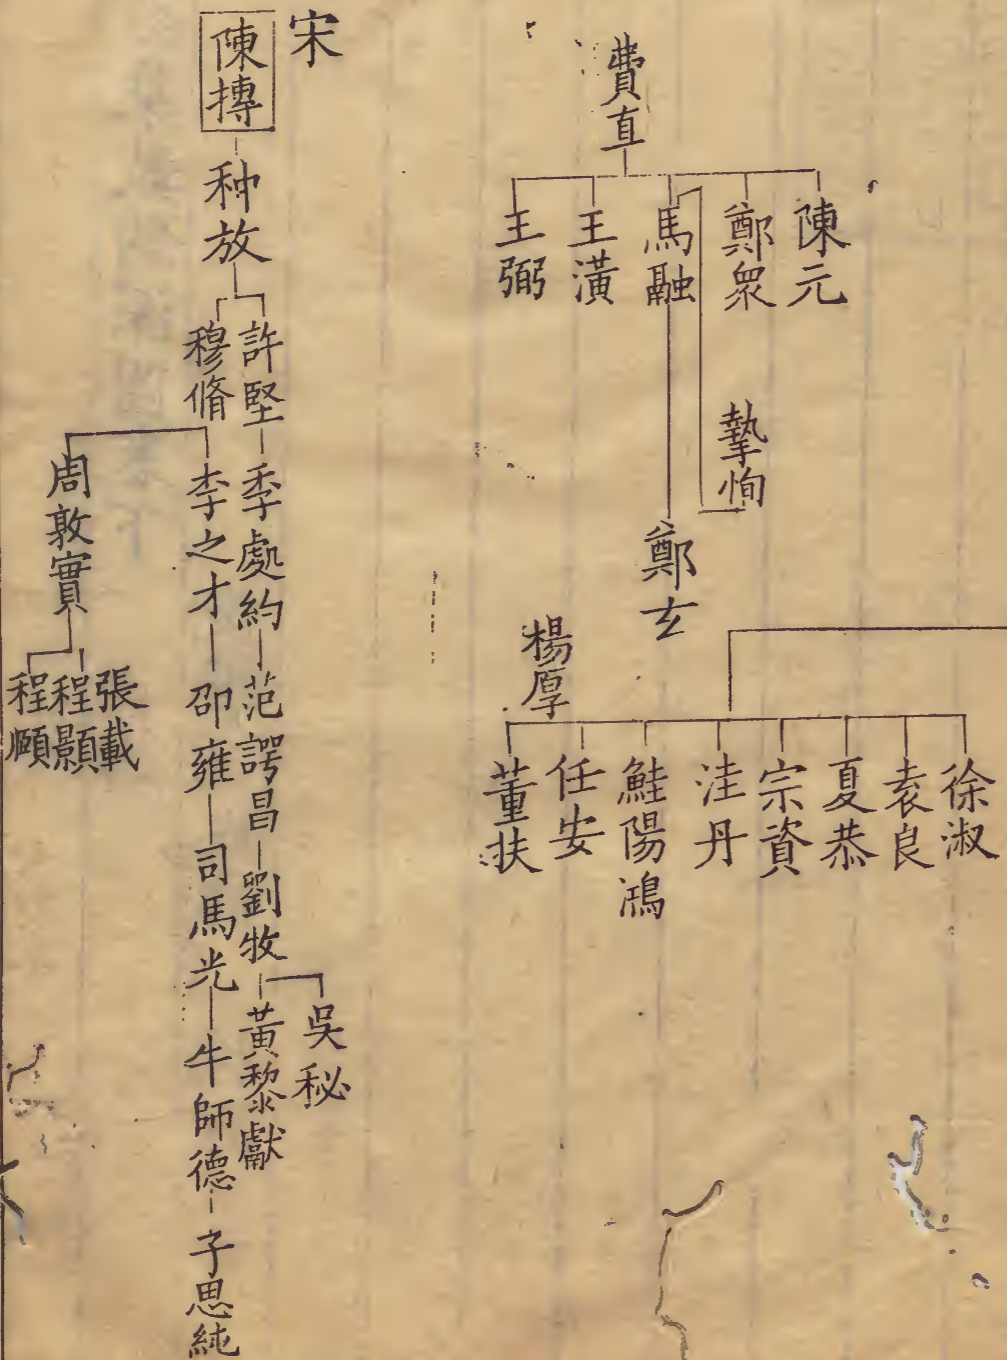 費直
陳元
鄭眾
馬融
王潢
王弼
摯恂
鄭玄
徐淑
袁良
夏恭
宗資
洼丹
鮭陽鴻
任安
董扶
楊厚
宋
陳摶
种放
許堅
季處約
范諤昌
劉牧
吳秘
黃黎獻
穆脩
李之才
邵雍
司馬光
牛師德
子思純
周敦實
張載
程顥
程頤